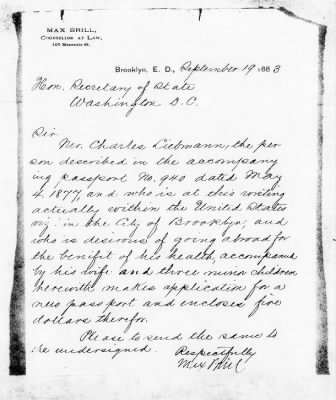 MAX BRILL,
COUNSELOR AT LAW,
Brooklyn, E. D., September 19 1883
Hon. Secretary of State
Washington D. C.
Sir
Mr. Charles Liebmann, the per
son described in the accompany
ing passport No. 940 dated May
4. 1877, and who is at this writing
actually within the United States
viz: in the City of Brooklyn; and
who is desirous of going abroad for
the benifit of his health, accompanied
by his wife and three minor children
herewith makes application for a
new passport and encloses five
dollars therefor.
Please to send the same to
the undersigned. Respectfully
Max Brill